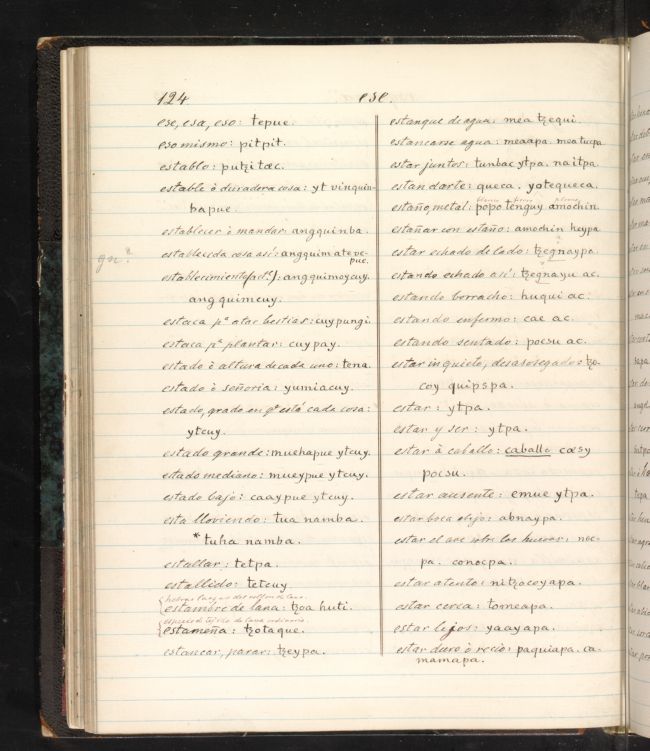 124.
ese.
ese, esa, eso: tepue.
eso mismo: pitpit.
establo: putzitæc.
estable ò duradera cosa: yt vinquin-
bapue.
establecer ò mandar: angquinba.
establecida cosa asi: angquimateve-
pue.
establecimiento: angquimoycuy.
angquimcuy.
estaca pª atar bestias: cuypungi.
estaca pª plantar: cuypay.
estado ò altura de cada uno: tena.
estado ò señoria: yumiacuy.
estado, grado en qº está cada cosa:
ytcuy.
estado grande: muehapue ytcuy.
estado mediano: mueypue ytcuy.
estado bajo: caaypue ytcuy.
esta lloviendo: tua namba.
* tuha namba.
estallar: tetpa.
estallido: tetcuy
estambre de lana: tzoa huti.
estameña: tzotaque.
estancar, parar: tzeypa.
estanque de agua: mea tzequi.
estancarse agua: meaapa. meatucpa
estar juntos: tunbac ytpa. naitpa.
estandarte: queca. yotequeca.
estaño, metal: popo tenguy amochin.
estañar con estaño: amochin heypa
estar echado de lado: tzegnaypa.
estando echado asi: tzegnayu ac.
estando borracho: huqui ac.
estando enfermo: cae ac.
estando sentado: pocsu ac.
estar inquieto, desasosegado: tzo-
coy quipspa.
estar: ytpa.
estar y ser: ytpa.
estar à caballo: caballo cæsy
pocsu.
estar ausente: emue ytpa.
estar boca abajo: abnaypa.
estar el ave sobre los huevos: noc-
pa. conocpa.
estar atento: nitzocoyapa.
estar cerca: tomeapa.
estar lejos: yaayapa.
estar duro ò recio: paquiapa. ca-
mamapa.